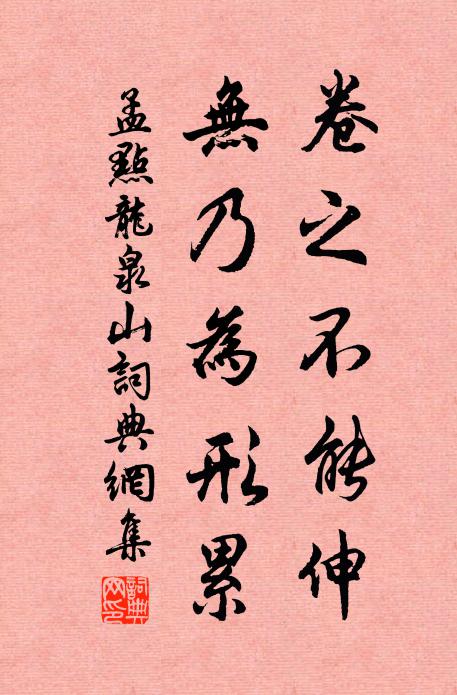 卷之不能伸
無乃為形累
孟點龍泉山詞典網集
詞典網印